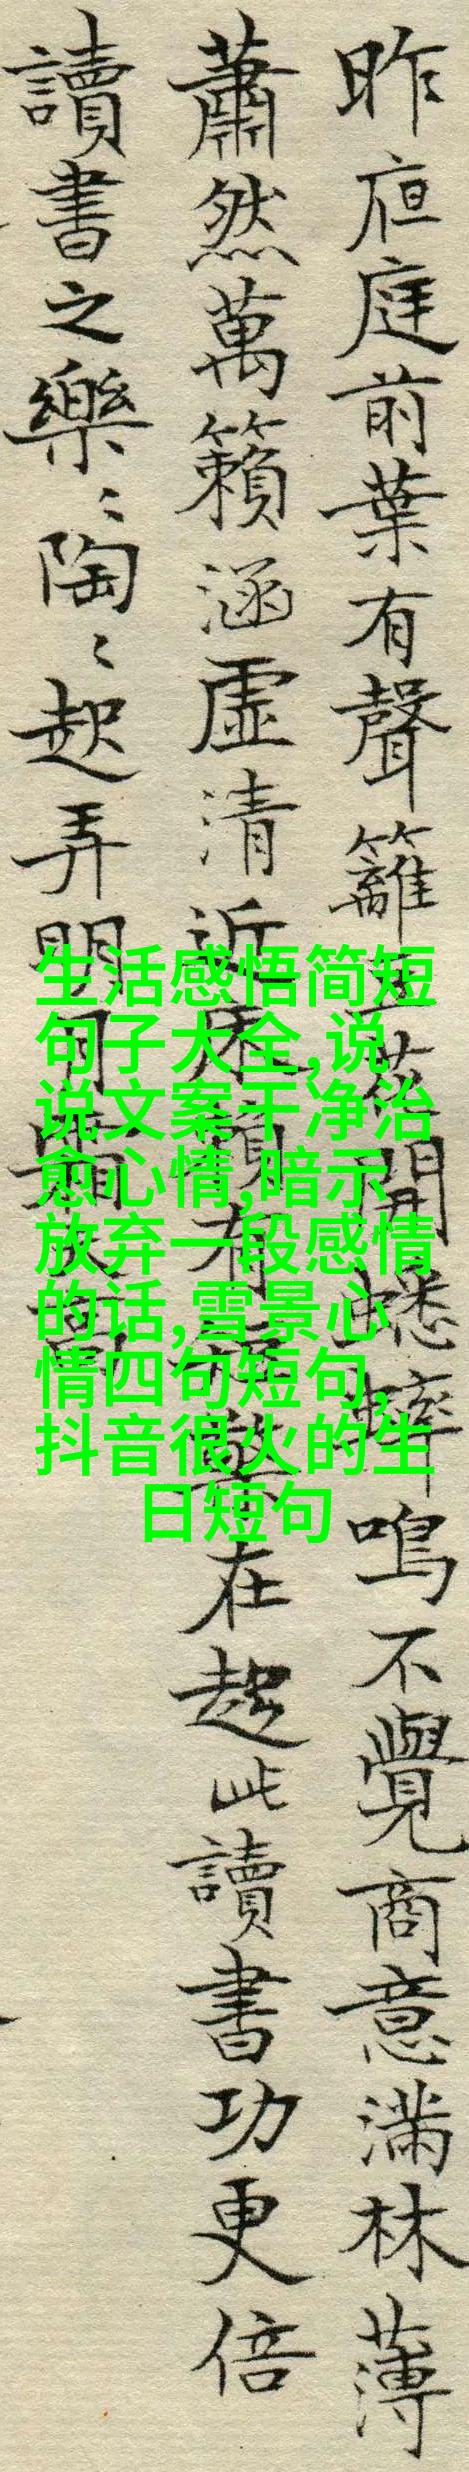 昨夜庭前葉有聲籬豆花開蟋蟀鳴不覺商意滿林薄
蕭然萬籟涵虛清近床賴有短檠在趁此讀書功更倍
讀書之樂〻陶〻起弄明月霜天高
生活感悟简短
句子大全,说
说文案干净治
愈心情,暗示
放弃一段感情
的话,雪景心
情四句短句,
抖音很火的生
日短句